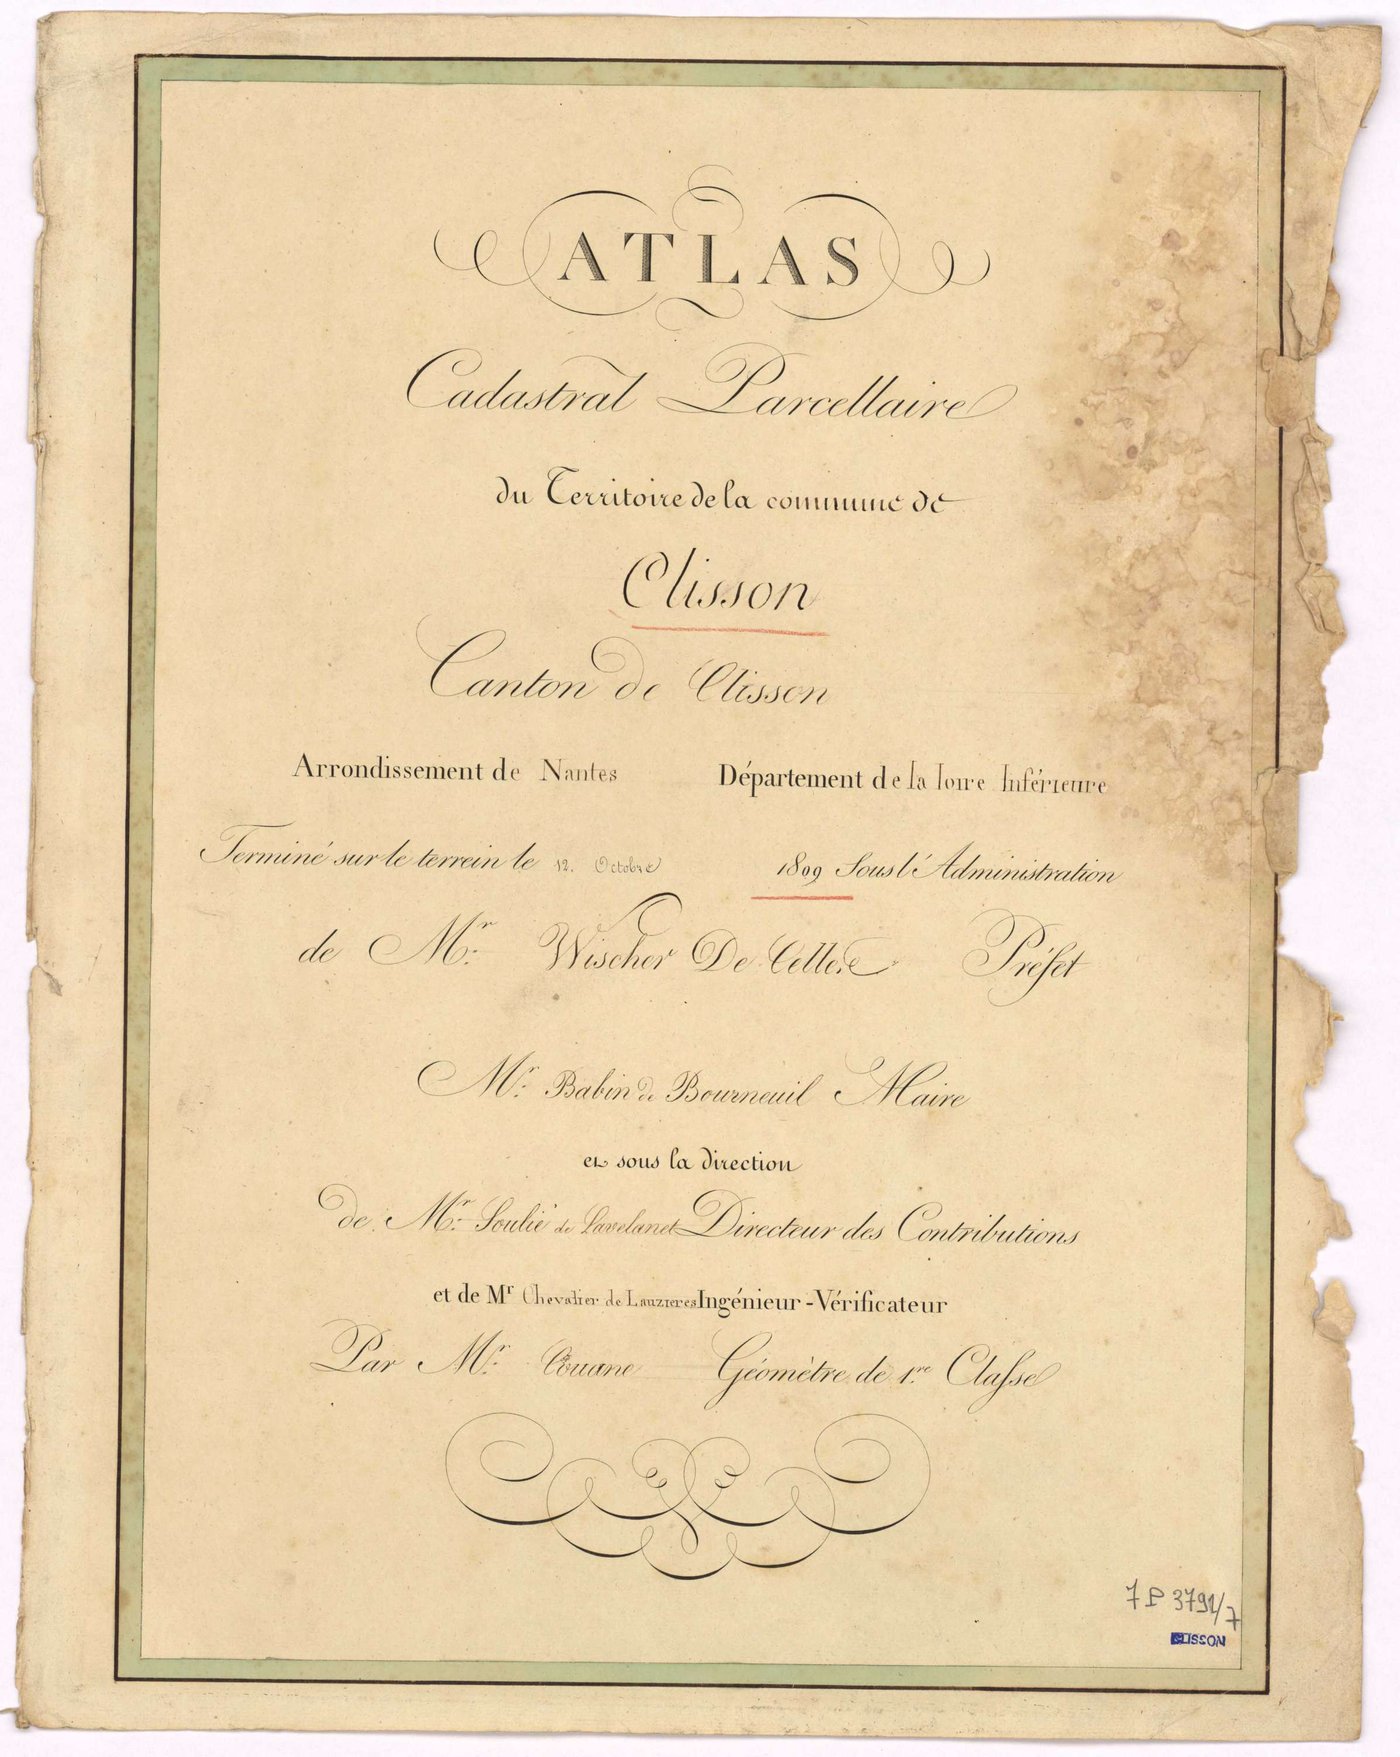 ATLAS
Cadastral Parcellaire
du Territoire de la commune de
Clisson
Canton de Clisson
Arrondissement de Nantes Département de la Loire Inférieure
Terminé sur le terrein le 12. Octobre 1809 Sous l'Administration
de Mr. Wischer De Celles Préfet
Mr. Babin de Bourneuil Maire
et sous la direction
de Mr. Soulié de Lavelanet Directeur des Contributions
et de Mr Chevalier de Lauzieres Ingénieur-Vérificateur
Par Mr. Géomètre de 1.re Classe
7 P 3791/7
CLISSON